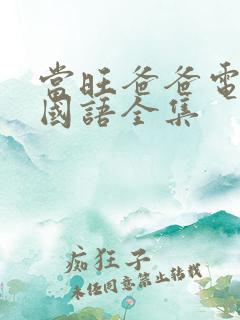 當旺爸爸電
國語全集
痴狂子
未经同意禁止转载